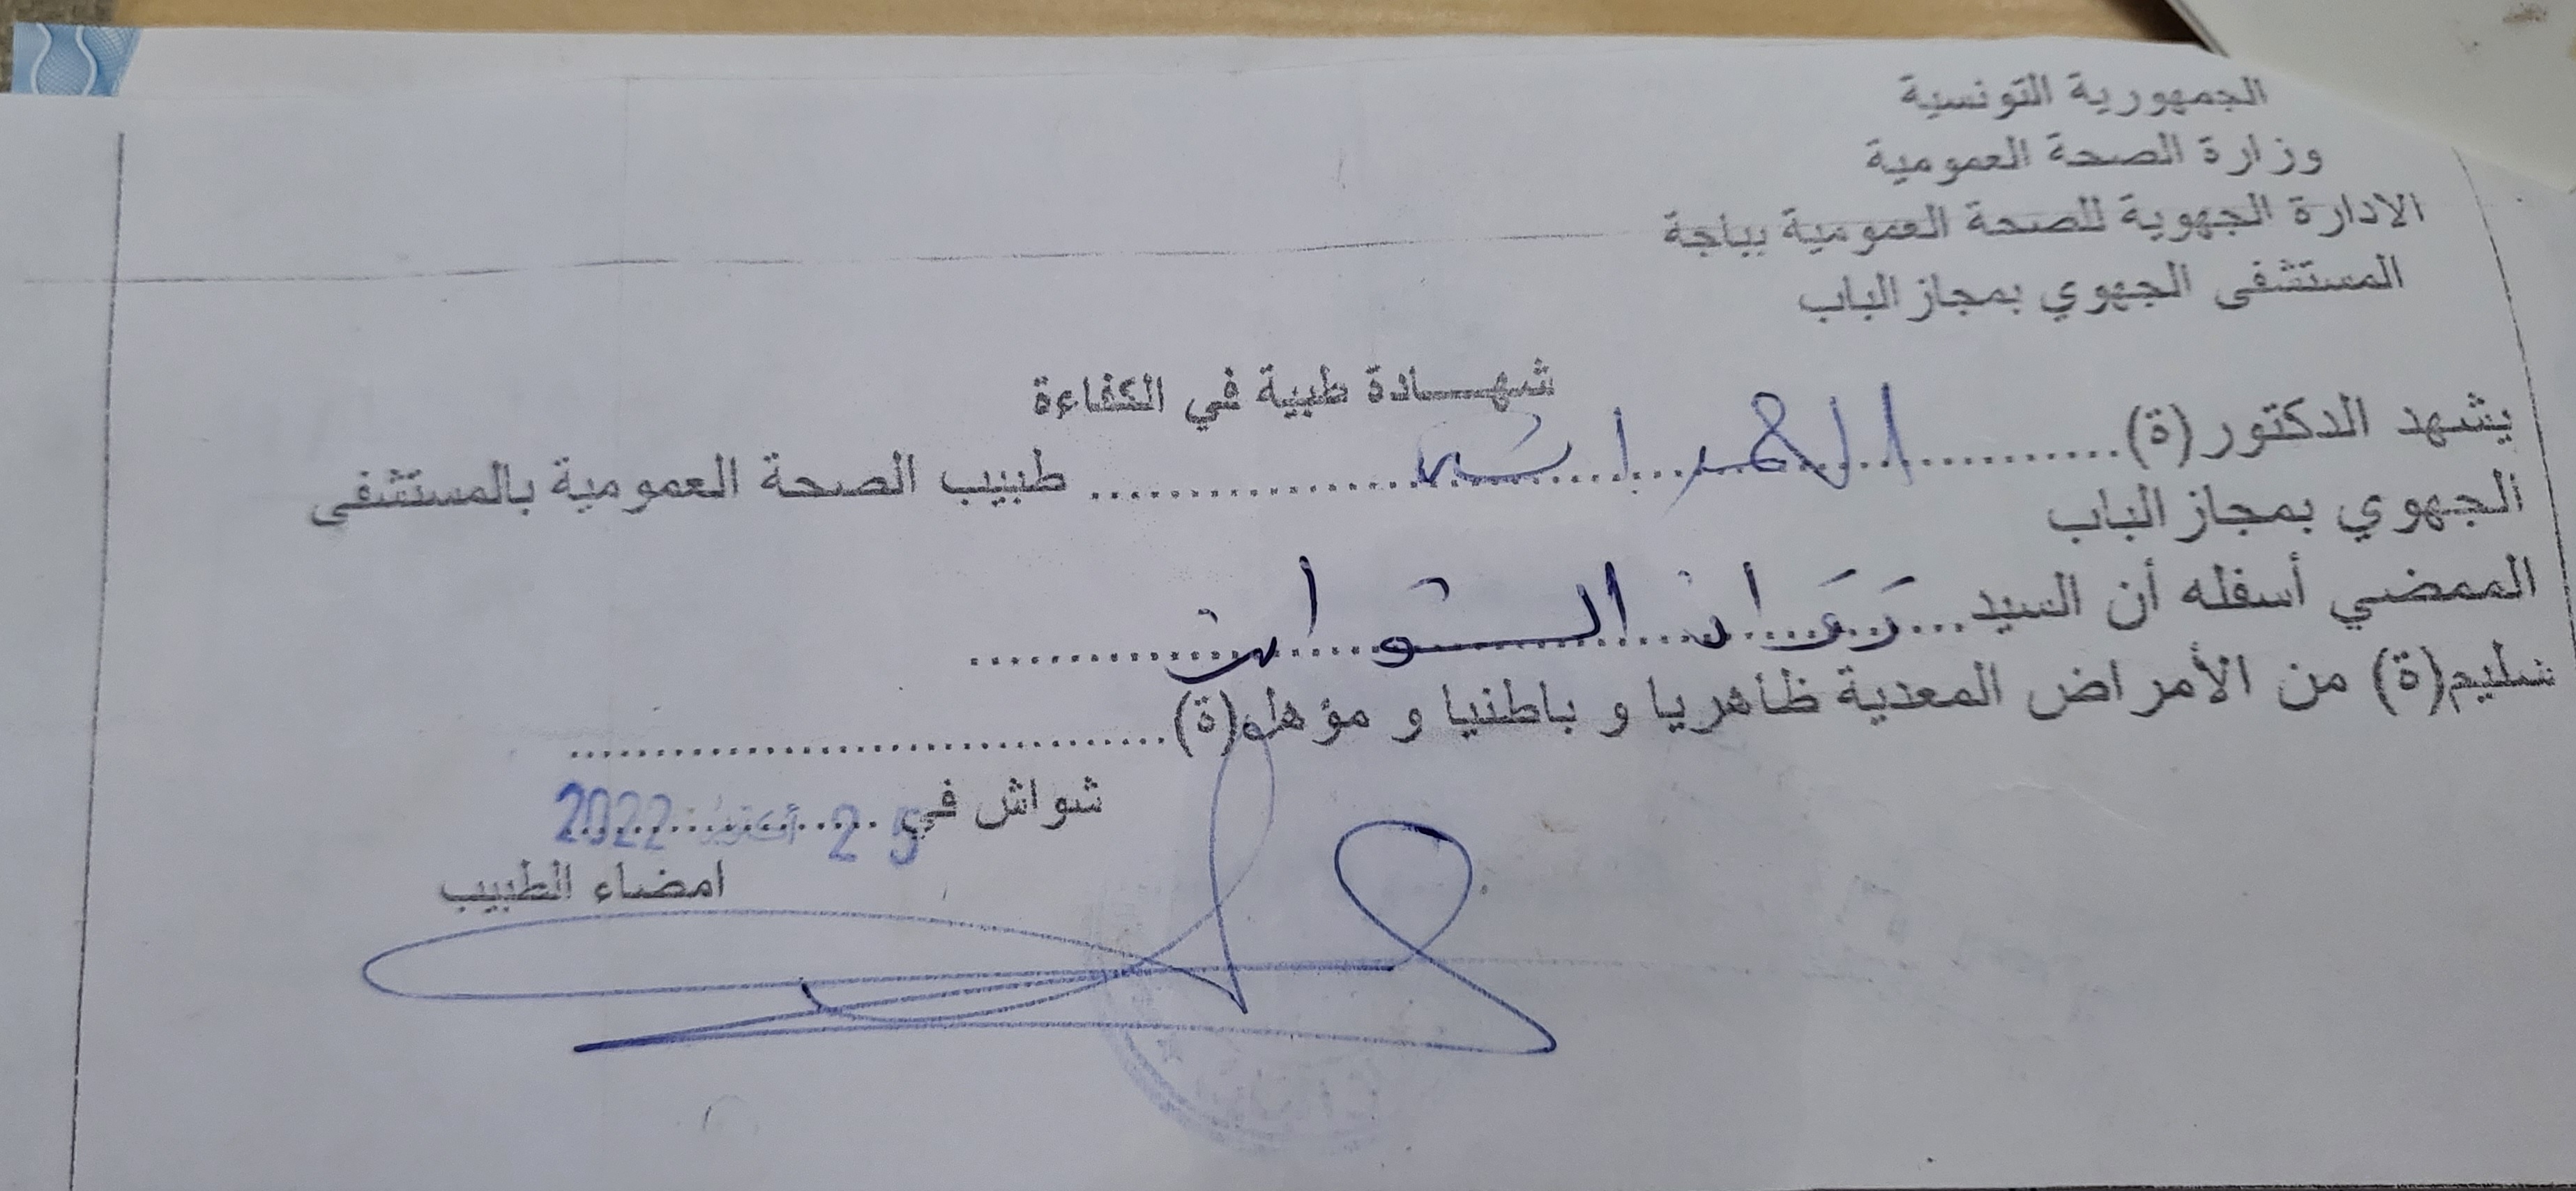 الجمهورية التونسية
وزارة الصحة العمومية
الادارة الجهوية للصحة العمومية بباجة
المستشفى الجهوي بمجاز الباب
شهـــادة طبية في الكفاءة
يشهد الدكتور(ة)................ طبيب الصحة العمومية بالمستشفى
الجهوي بمجاز الباب
الممضي أسفله أن السيد................
سليم(ة) من الأمراض المعدية ظاهريا و باطنيا و مؤهل(ة)................
شواش في 25 أكتوبر 2022
امضاء الطبيب